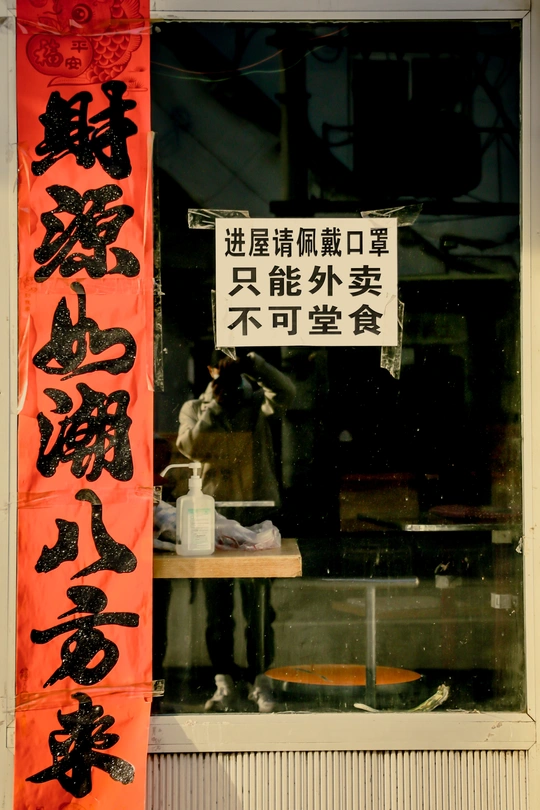 福
平安
財源如潮八方来
进屋请佩戴口罩
只能外卖
不可堂食